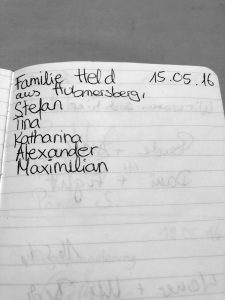 Familie Held 15.05.16
aus Hutmersberg,
Stefan
Tina
Katharina
Alexander
Maximilian